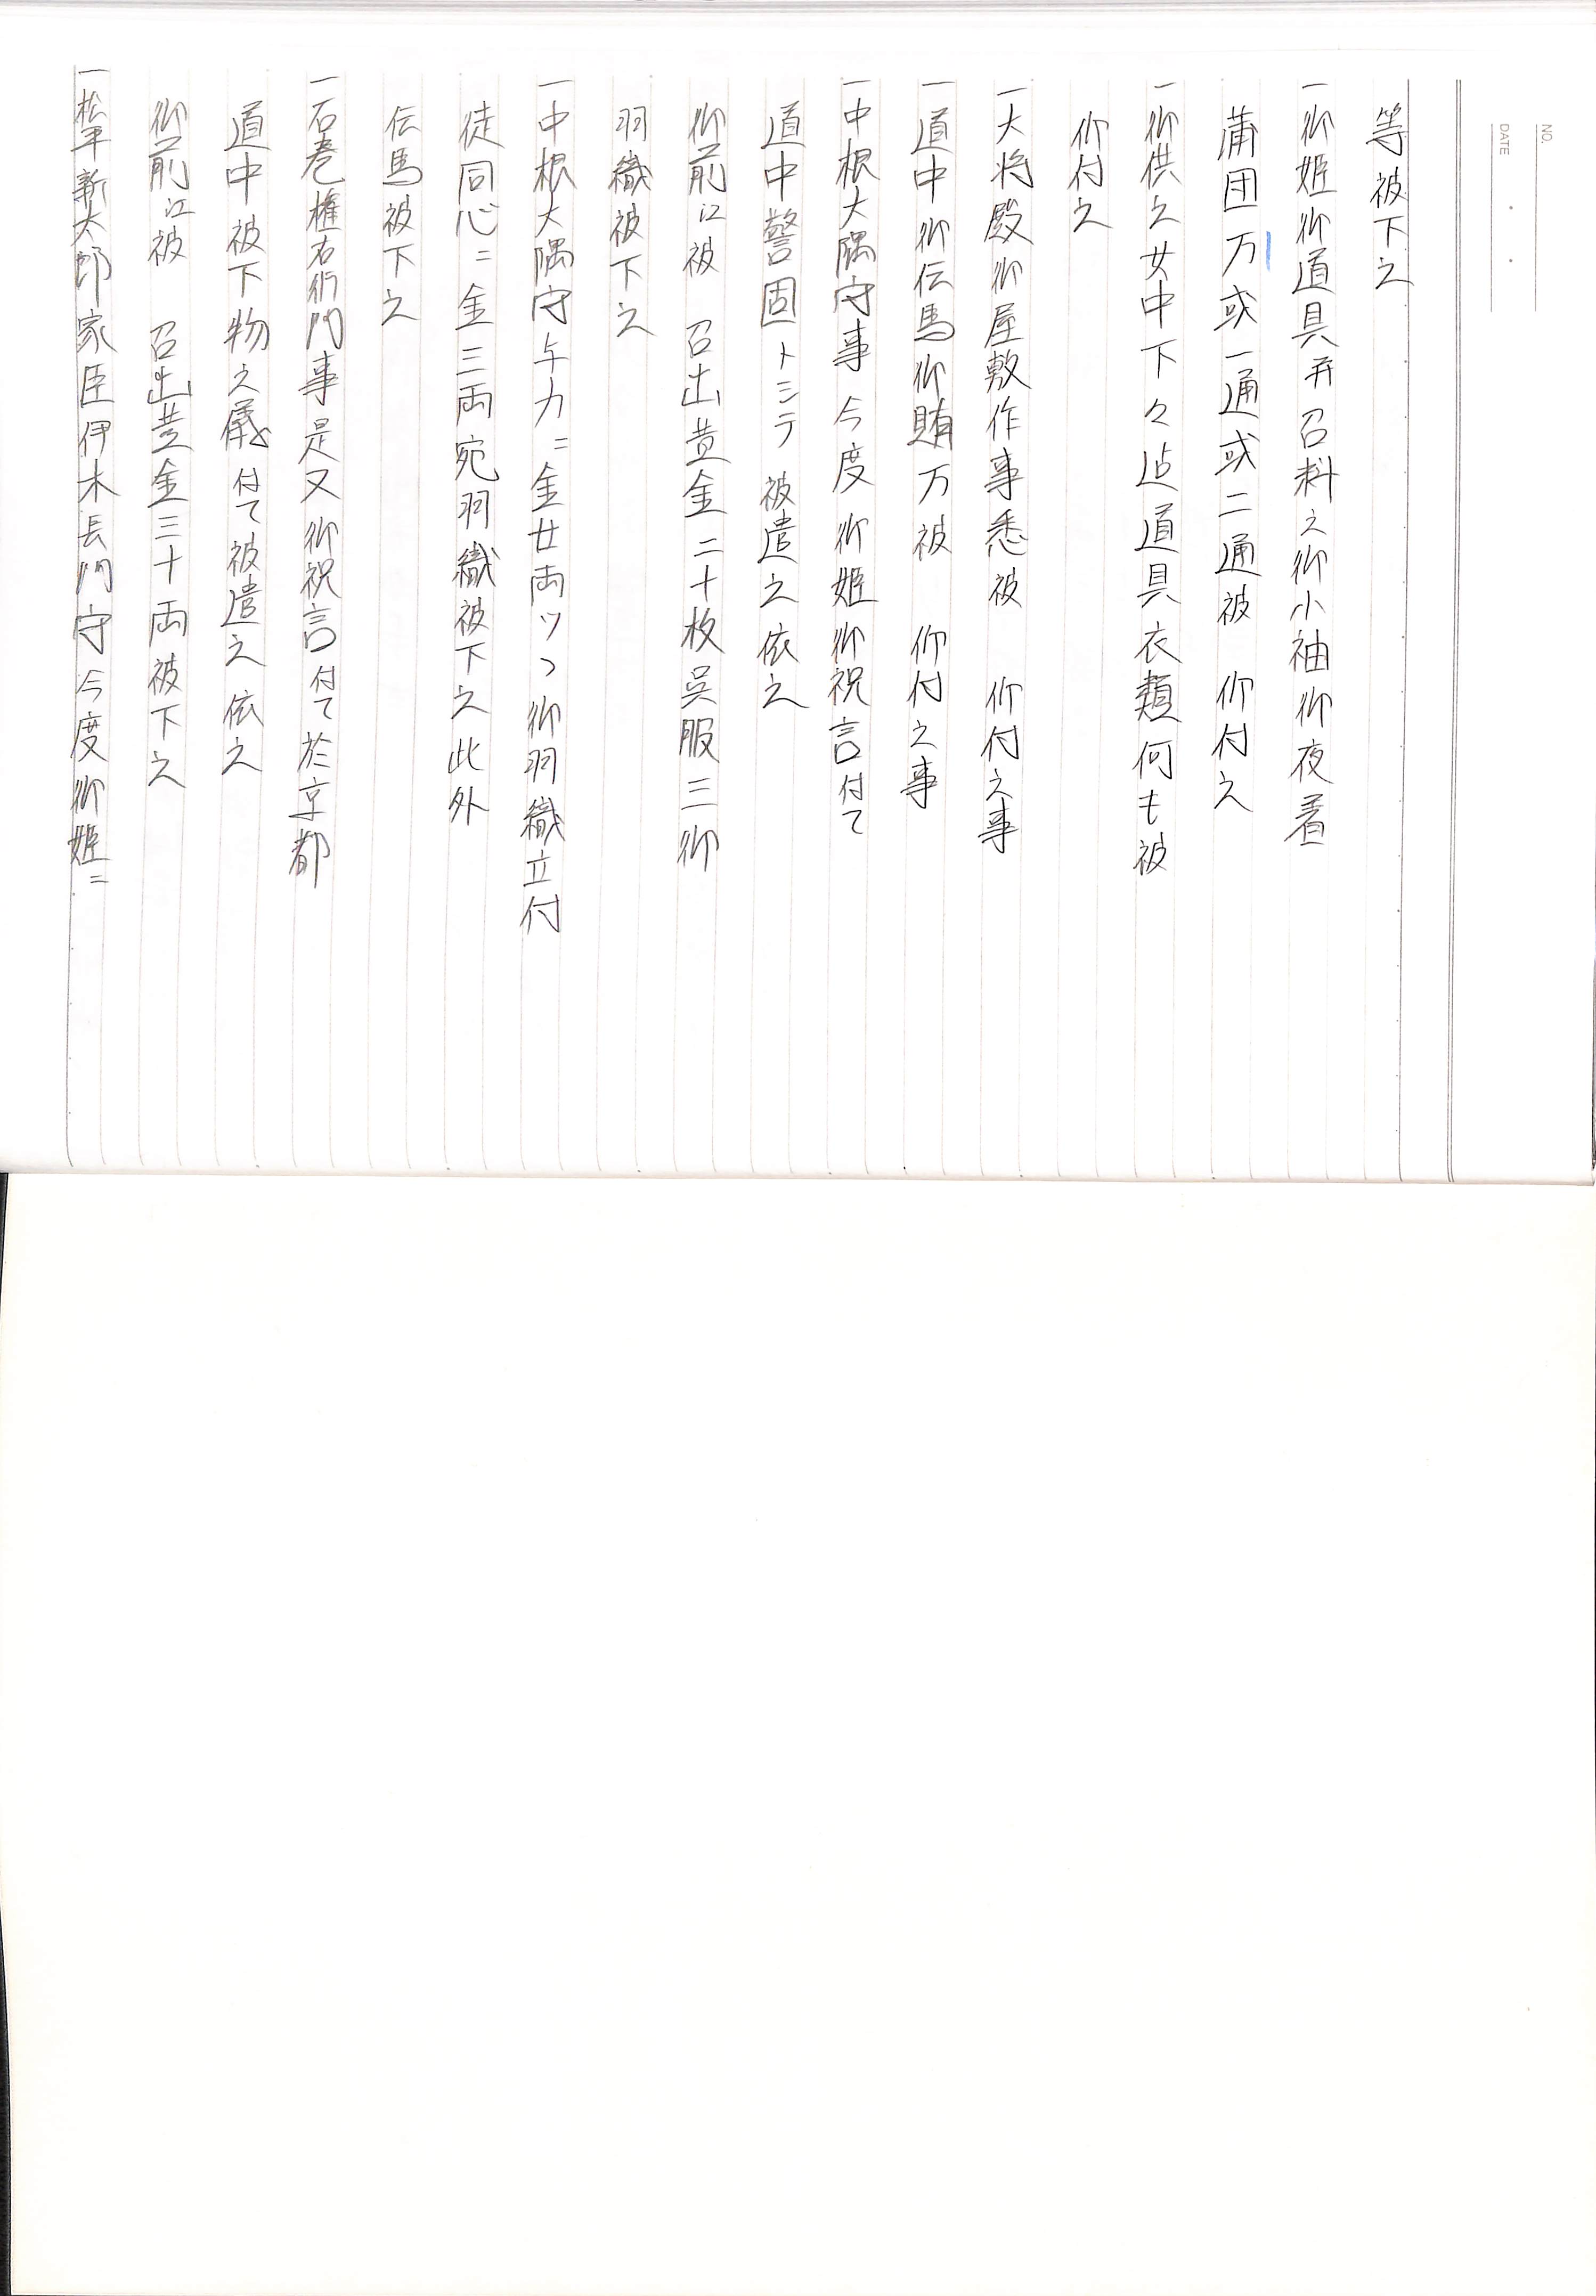 NO.
DATE
等被下之
一御姫御道具并召料之御小袖御夜着
蒲団万或一通或二通被 仰付之
一御供之女中下々迠道具衣類何も被
仰付之
一大将殿御屋敷作事悉被 仰付之事
一道中御伝馬御賄万被 仰付之事
一中根大隅守事今度御姫御祝言付て
道中警固トシテ被遣之依之
御前江被 召出黄金二十枚呉服三御
羽織被下之
一中根大隅守与力ニ金廿両ツヽ御羽織立付
徒同心ニ金三両宛羽織被下之此外
伝馬被下之
一石巻権右衛門事是又御祝言付て於京都
道中被下物之儀付て被遣之依之
御前江被 召出黄金三十両被下之
一松平新太郎家臣伊木長門守今度御姫ニ